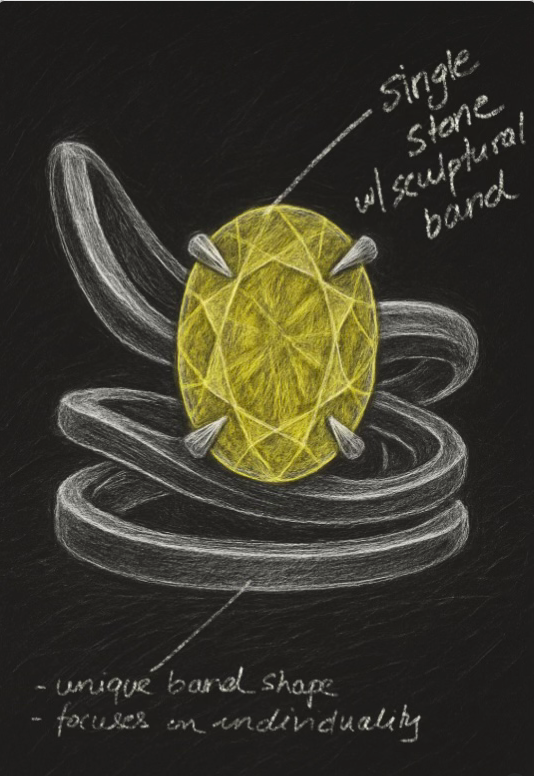 single
stone
w/ sculptural
band
- unique band shape
- focuses on individuality